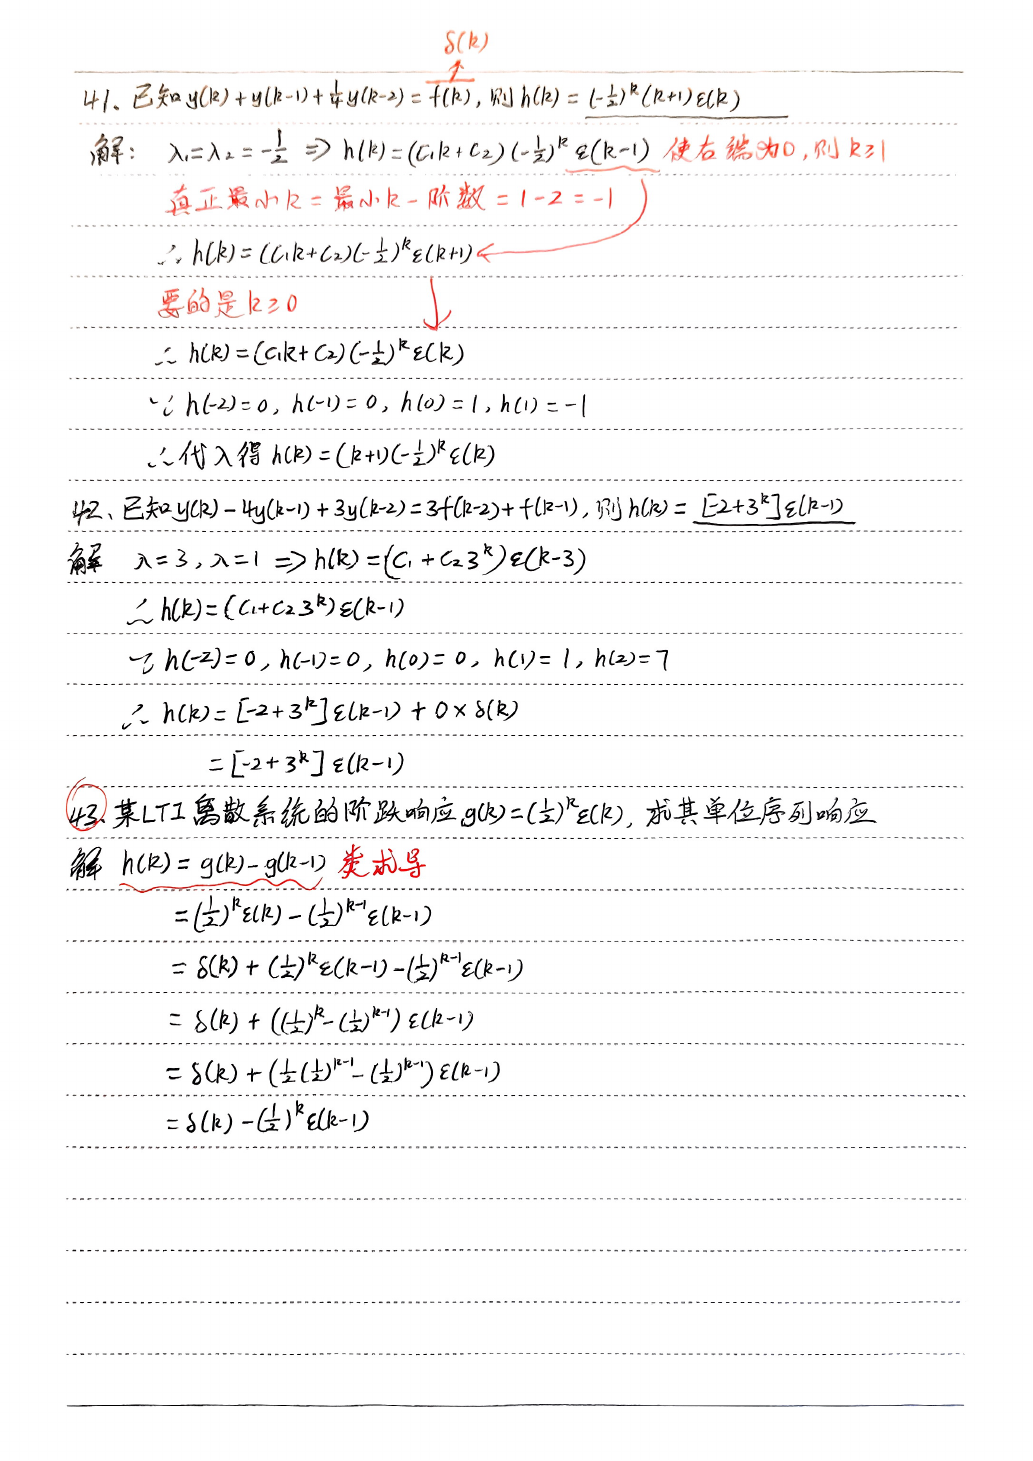 δ(k)
41、已知y(k)+y(k-1)+¼y(k-2)=f(k), 则h(k)=(-½)^k(k+1)ε(k)
解: λ₁=λ₂=-½ ⇒ h(k)=(C₁k+C₂)(-½)^k ε(k-1) 使右端为0, 则k≥1
真正最小k=最小k-阶数=1-2=-1
∴ h(k)=(C₁k+C₂)(-½)^k ε(k+1)
要的是k≥0
∴ h(k)=(C₁k+C₂)(-½)^k ε(k)
∵ h(-2)=0, h(-1)=0, h(0)=1, h(1)=-1
∴代入得h(k)=(k+1)(-½)^k ε(k)
42、已知y(k)-4y(k-1)+3y(k-2)=3f(k-2)+f(k-1), 则h(k)=[-2+3^k]ε(k-1)
解 λ=3, λ=1 ⇒ h(k)=(C₁+C₂3^k)ε(k-3)
∴ h(k)=(C₁+C₂3^k)ε(k-1)
∵ h(-2)=0, h(-1)=0, h(0)=0, h(1)=1, h(2)=7
∴ h(k)=[-2+3^k]ε(k-1)+0×δ(k)
=[-2+3^k]ε(k-1)
43、某LTI离散系统的阶跃响应g(k)=(½)^k ε(k), 求其单位序列响应
解 h(k)=g(k)-g(k-1) 类求导
=(½)^k ε(k)-(½)^{k-1}ε(k-1)
=δ(k)+(½)^k ε(k-1)-(½)^{k-1}ε(k-1)
=δ(k)+((½)^k-(½)^{k-1})ε(k-1)
=δ(k)+(½(½)^{k-1}-(½)^{k-1})ε(k-1)
=δ(k)-(½)^k ε(k-1)